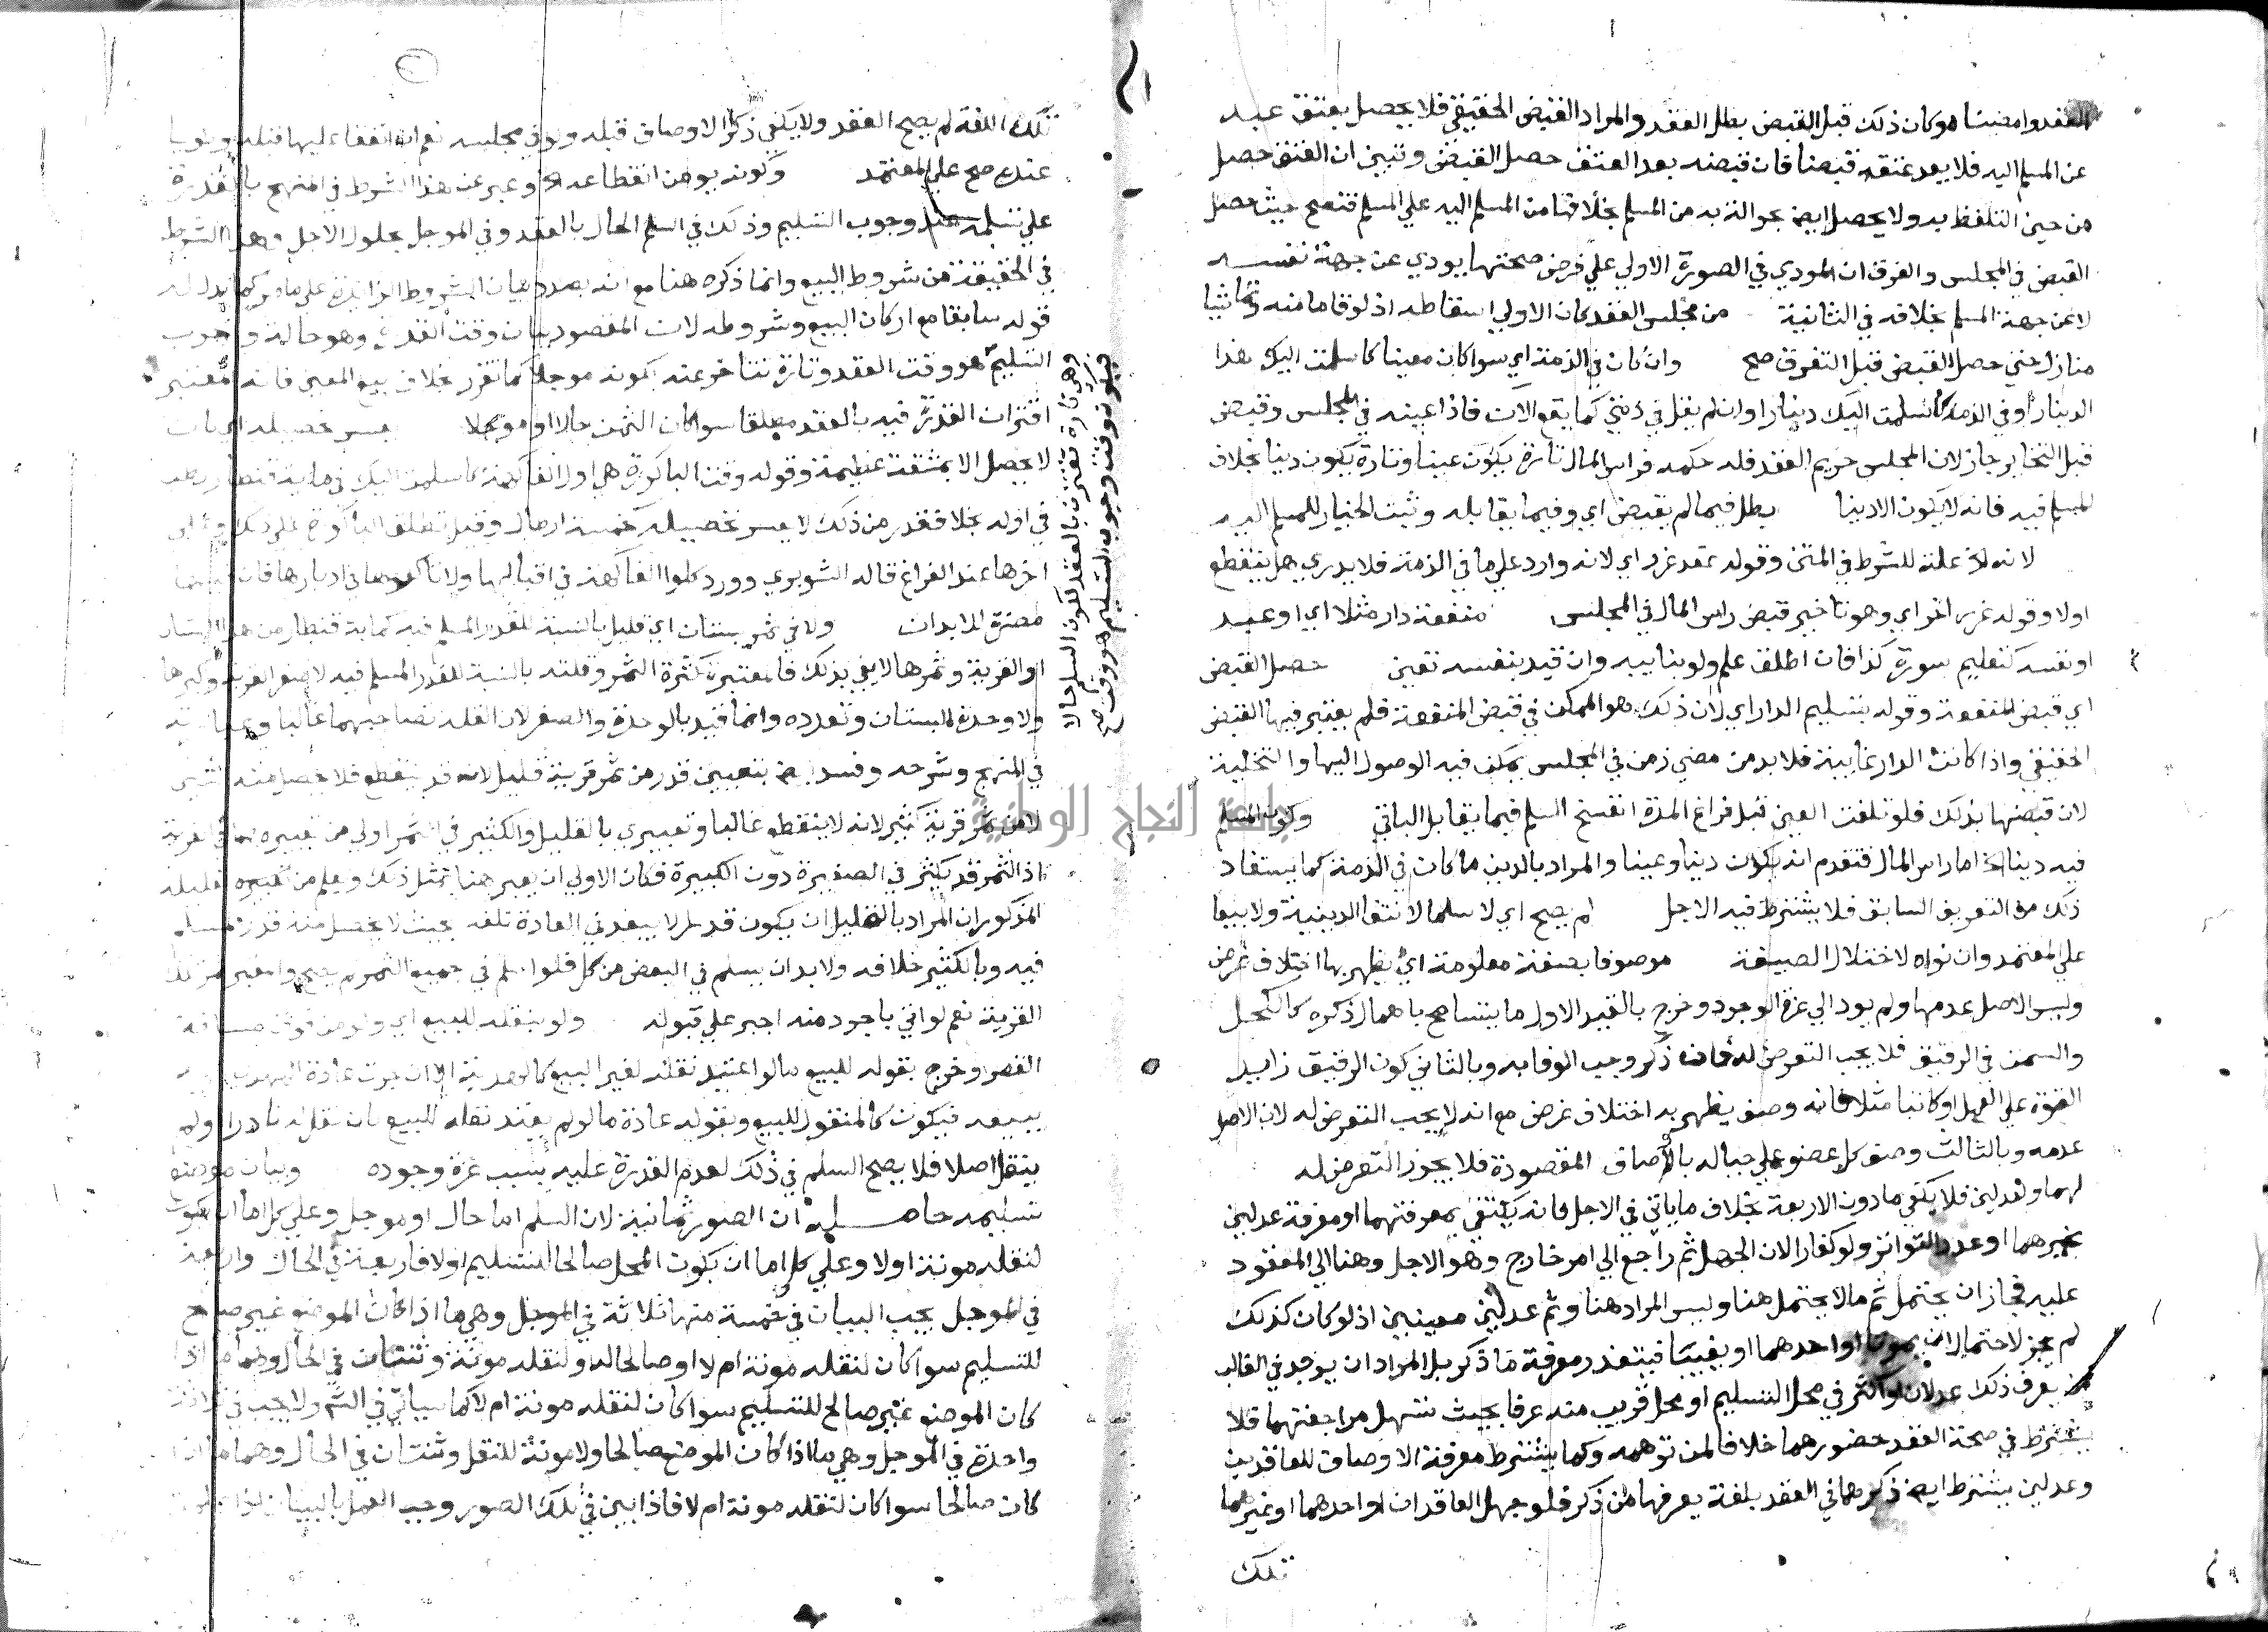 العقد وامضيناه وكان ذلك قبل القبض بطل العقد والمراد القبض الحقيقي فلا يحصل بعتق عبد
عن المسلم اليه فلا يعد عتقه قبضا فان قبضه بعد العتق حصل القبض وتبين ان العتق حصل
من حين التلفظ به ولا يحصل ايضا بحوالة به من المسلم بخلافها من المسلم اليه على المسلم فتصح حيث حصل
القبض في المجلس والفرق ان المودي في الصورة الاولي علي فرض صحتها يودي عن جهة نفسه
لا عن جهة المسلم بخلافه في الثانية من مجلس العقد كان الاولي اسقاطه اذ لو قاما منه وتماشيا
منازل حتى حصل القبض قبل التفرق صح وان كان في الذمة اي سواكان معينا كاسلمت اليك هذا
الدينار او في الذمة كاسلمت اليك دينارا وان لم يقل في ذمتي كما يقع الان فاذا عينه في المجلس وقبض
قبل التخاير جاز لان المجلس حريم العقد فله حكمه فراس المال تارة يكون عينا وتارة يكون دينا بخلاف
المسلم فيه فانه لا يكون الا دينا بطل فيما لم يقبض اي وفيما يقابله وثبت الخيار للمسلم اليه
لانه لخ علة للشرط في المتن وقوله عقد غرر اي لانه وارد علي ما في الذمة فلا يدري هل ينقطع
اولا وقوله غرر اخر اي وهو تاخير قبض راس المال في المجلس منفعة دار مثلا اي او عبد
او نفسه كتعليم سورة كذا فان اطلق علم ولو بنايبه وان قيد بنفسه تعين حصل القبض
اي قبض المنفعة وقوله بتسليم الدار اي لان ذلك هو الممكن في قبض المنفعة فلم يعتبر فيها القبض
الحقيقي واذا كانت الدار غايبة فلا بد من مضي زمن في المجلس يمكن فيه الوصول اليها والتخلية
لان قبضها بذلك فلو تلفت العين قبل فراغ المدة انفسخ السلم فيما يقابل الباقي وكون المسلم
فيه دينا الخ اما راس المال فتقدم انه يكون دينا وعينا والمراد بالدين ما كان في الذمة كما يستفاد
ذلك من التعريف السابق فلا يشترط فيه الاجل لم يصح اي لا سلما لانتفا الدينية ولا بيعا
علي المعتمد وان نواه لاختلال الصيغة موصوفا بصفة معلومة اي يظهر بها اختلاف غرض
وليس الاصل عدمها ولم يود الي عزة الوجود وخرج بالقيد الاول ما يتسامح باهمال ذكره كالكحل
والسمن في الرقيق فلا يجب التعرض له فان ذكر وجب الوفا به وبالثاني كون الرقيق زايد
القوة علي العمل او كاتبا مثلا فانه وصف يظهر به اختلاف غرض مع انه لا يجب التعرض له لان الاصل
عدمه وبالثالث وصف كل عضو علي حياله بالاوصاف المقصودة فلا يجوز التعرض له
لهما ولعدلين فلا يكفي ما دون الاربعة بخلاف ما ياتي في الاجل فانه يكتفي بمعرفتهما او معرفة عدلين
غيرهما او عدد التواتر ولو كفارا لان الجهل ثم راجع الي امر خارج وهو الاجل وهنا الي المعقود
عليه فجاز ان يحتمل ثم ما لا يحتمل هنا وليس المراد هنا وثم عدلين معينين اذ لو كان كذلك
لم يجز لاحتمال ان يموتا او احدهما او يغيبا فيتعذر معرفة ما ذكر بل المراد ان يوجد في الغالب
من يعرف ذلك عدلان او اكثر في محل التسليم او محل قريب منه عرفا بحيث تسهل مراجعتهما فلا
يشترط في صحة العقد حضورهما خلافا لمن توهمه وكما يشترط معرفة الاوصاف للعاقدين
وعدلين يشترط ايضا ذكرهما في العقد بلغة يعرفها من ذكر فلو جهل العاقدان او احدهما او غيرهما
تلك
تلك اللغة لم يصح العقد ولا يكفي ذكر الاوصاف قبله ولو في مجلسه نعم ان اتفقا عليها قبله ونويا
عنده صح علي المعتمد وكونه يومن انقطاعه الخ وعبر عن هذا الشرط في المنهج بالقدرة
علي تسلمه عند وجوب التسليم وذلك في السلم الحال بالعقد وفي الموجل بحلول الاجل وهذا الشرط
في الحقيقة من شروط البيع وانما ذكره هنا مع انه بصدد بيان الشروط الزايدة علي ما مر كما يدل له
قوله سابقا مع اركان البيع وشروطه لان المقصود بيان وقت القدرة وهو حالة وجوب
التسليم هو وقت العقد وتارة تتاخر عنه لكونه موجلا كما تقرر بخلاف بيع المعين فانه المعتبر
اقتران القدرة فيه بالعقد مطلقا سواكان الثمن حالا او موجلا يعسر تحصيله
لا يحصل الا بمشقة عظيمة وقوله وقت الباكورة هي اول الفاكهة كاسلمت اليك في ماية قنطار رطب
في اوله بخلاف قدر من ذلك لا يعسر تحصيله كخمسة ارطال وقيل تطلق الباكورة علي ذلك وعلي
اخرها عند الفراغ قاله الشوبري وورد كلوا الفاكهة في اقبالها ولا تاكلوها في ادبارها فان
مضرة للابدان ولا في ثمر بستان اي قليل بالنسبة للقدر المسلم فيه كماية قنطار من هذا البستان
او القرية وثمرها لا يفي بذلك فالمعتبر كثرة الثمر وقلته بالنسبة للقدر المسلم فيه لا صغر القرية وكبرها
ولا وحدة البستان وتعدده وانما قيد بالوحدة والصغر لان القلة تصاحبهما غالبا
في المنهج وشرحه وفسد ايضا بتعيين قدر من ثمر قرية قليل لانه قد ينقطع فلا يحصل منه شي
لا من ثمر قرية كثير لانه لا ينقطع غالبا وتعبيري بالقليل والكثير في الثمر اولي من تعبيره بهما في القرية
اذ الثمر قد يكثر في الصغيرة دون الكبيرة فكان الاولي ان يعبر هنا بمثل ذلك ويعلم من تعبيره
المذكور ان المراد بالقليل ان يكون قدرا لا يبعد في العادة تلفه بحيث لا يحصل منه قدر المسلم
فيه وبالكثير خلافه ولا بد ان يسلم في البعض من كل فلو اسلم في جميع الثمر لم يصح
القرية نعم لو اتي باجود منه اجبر علي قبوله ولو بنقله للبيع اي ولو من فوق مسافة
القصر وخرج بقوله للبيع ما لو اعتيد نقله لغير البيع كالهدية الا ان جرت عادة المهدي
ببيعه فيكون كالمنقول للبيع وبقوله عادة ما لو لم يعتد نقله للبيع بان نقل له نادرا او لم
ينقل اصلا فلا يصح السلم في ذلك لعدم القدرة عليه بسبب عزة وجوده وبيان موضع
تسليمه حاصله ان الصور ثمانية لان السلم اما حال او موجل وعلي كل اما ان يكون
لنقله مونة اولا وعلي كل اما ان يكون المحل صالحا للتسليم اولا فاربعة في الحال واربعة
في الموجل يجب البيان في خمسة منها ثلاثة في الموجل وهي ما اذا كان الموضع غير صالح
للتسليم سواكان لنقله مونة ام لا او صالحا له ولنقله مونة وثنتان في الحال وهما ما اذا
كان الموضع غير صالح للتسليم سواكان لنقله مونة ام لا كما سياتي في الشرح ولا يجب في ثلاثة
واحدة في الموجل وهي ما اذا كان الموضع صالحا ولا مونة للنقل وثنتان في الحال وهما ما اذا
كان صالحا سواكان لنقله مونة ام لا فاذا بين في تلك الصور وجب العمل بالبيان
وهو تارة تقترن بالعقد لكون السلم حالا
فيكون وقت وجوب التسليم هو وقت صح
جامعة النجاح الوطنية